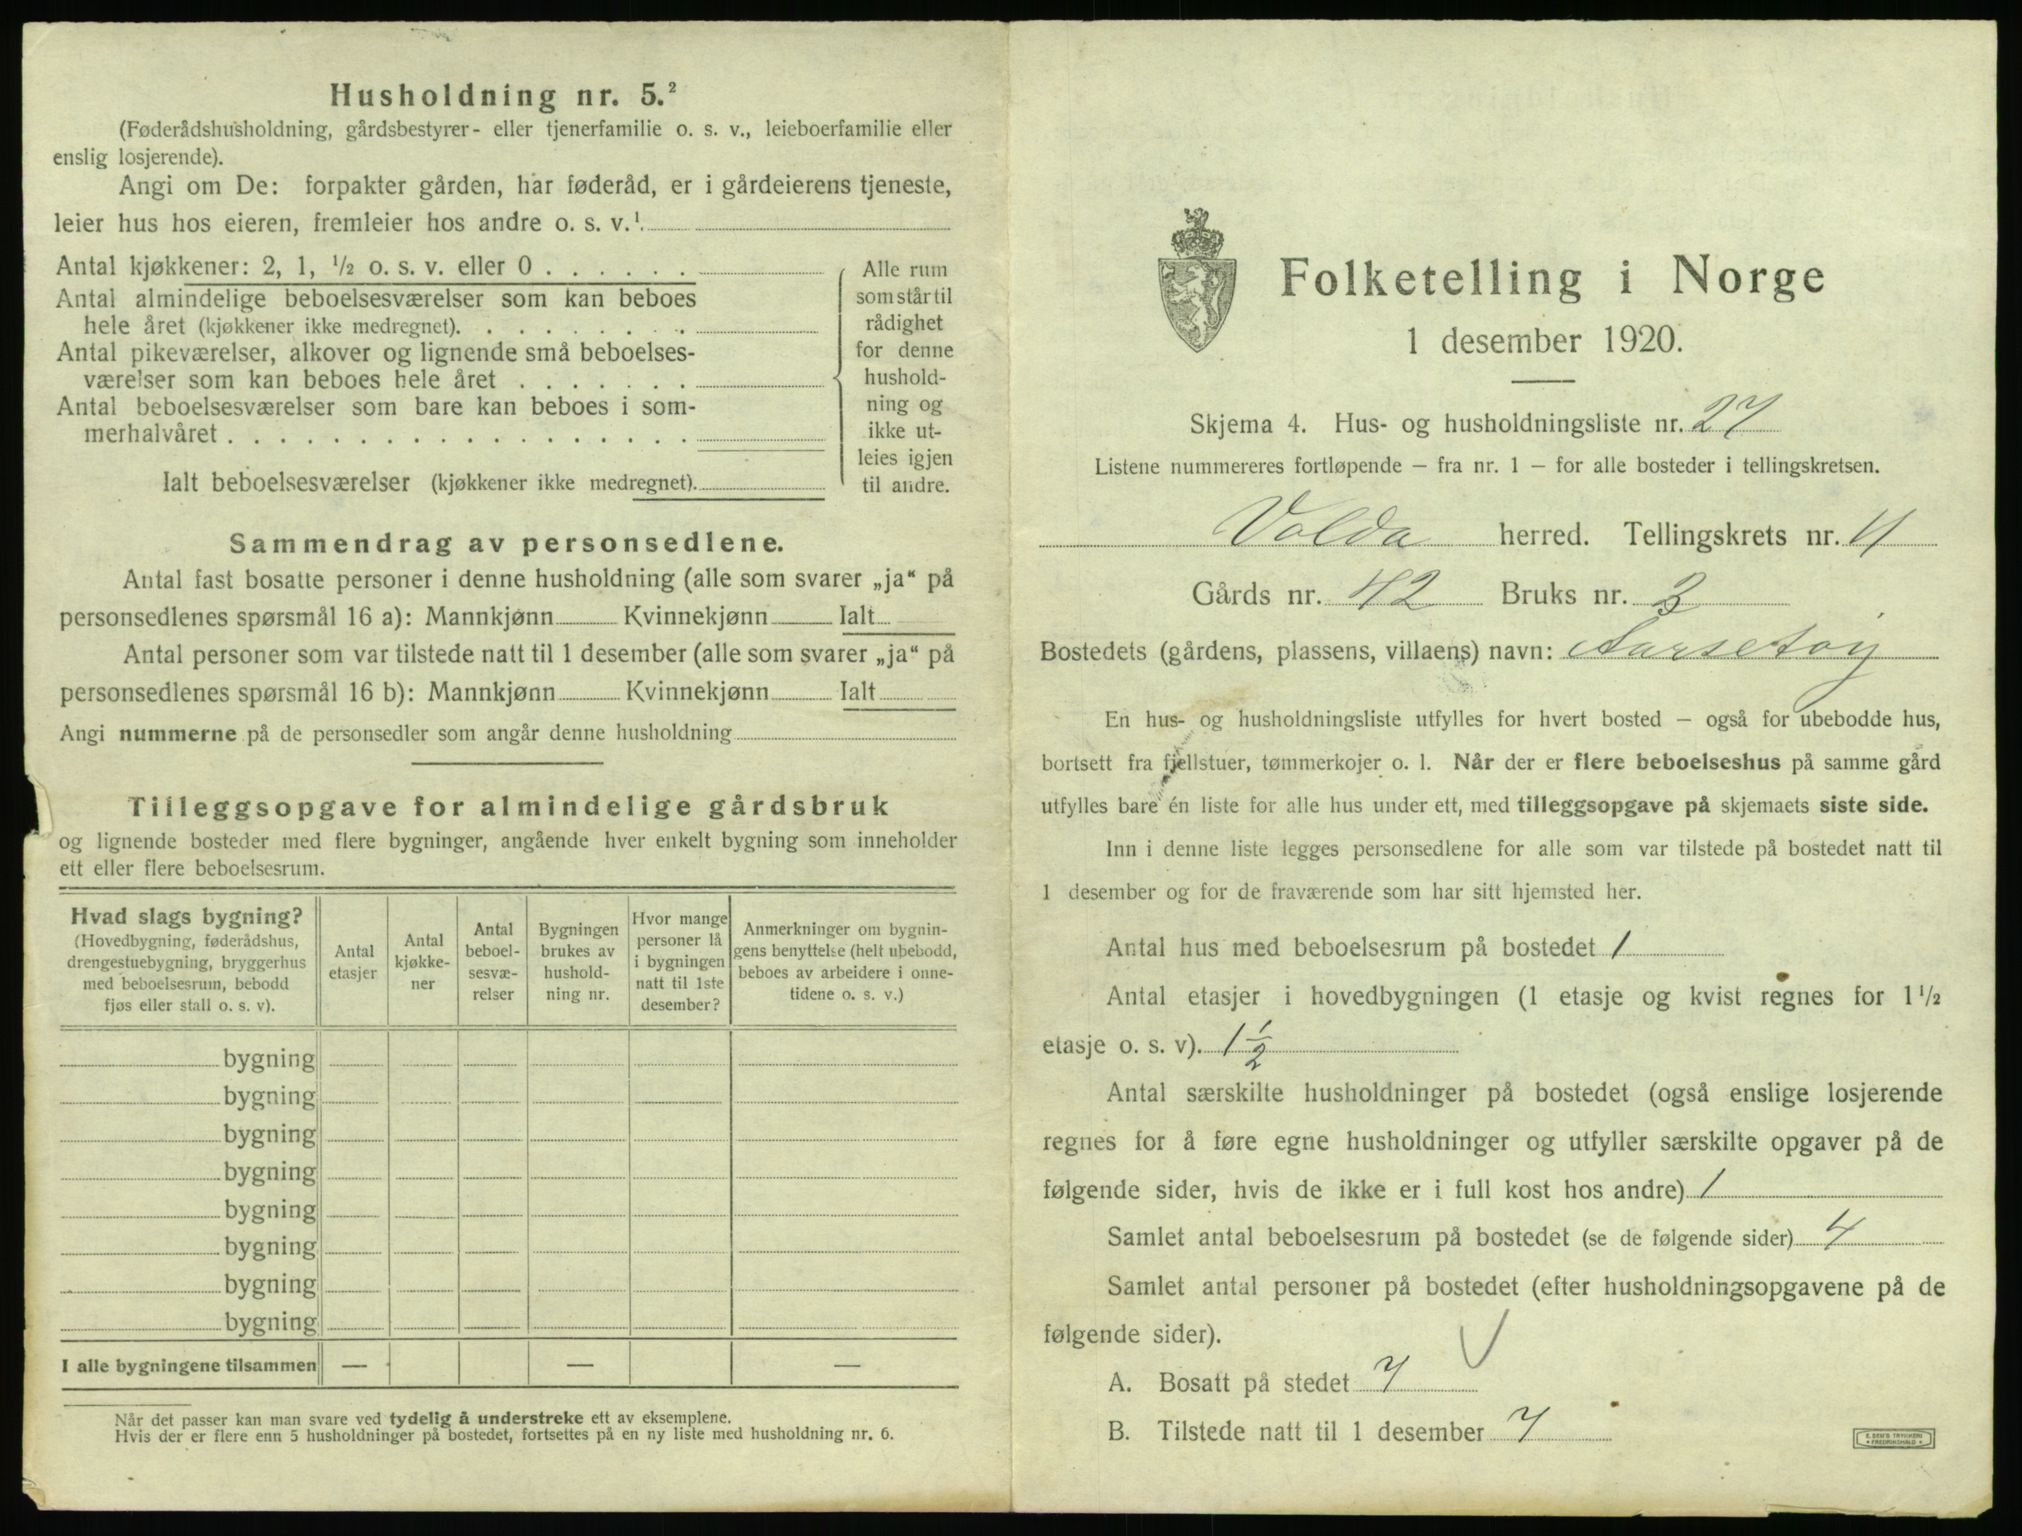 Husholdning nr. 5.²
(Føderådshusholdning, gårdsbestyrer- eller tjenerfamilie o. s. v., leieboerfamilie eller
enslig losjerende).
Angi om De: forpakter gården, har føderåd, er i gårdeierens tjeneste,
leier hus hos eieren, fremleier hos andre o. s. v.¹
Antal kjøkkener: 2, 1, ½ o. s. v. eller 0 . . . . . .
Antal almindelige beboelsesværelser som kan beboes
hele året (kjøkkener ikke medregnet). . . . . . . . .
Antal pikeværelser, alkover og lignende små beboelses-
værelser som kan beboes hele året . . . . . . .
Antal beboelsesværelser som bare kan beboes i som-
merhalvåret . . . . . . . . . . . . . . . . . .
Ialt beboelsesværelser (kjøkkener ikke medregnet).
Alle rum
som står til
rådighet
for denne
hushold-
ning og
ikke ut-
leies igjen
til andre.
Sammendrag av personsedlene.
Antal fast bosatte personer i denne husholdning (alle som svarer „ja“ på
personsedlenes spørsmål 16 a): Mannkjønn Kvinnekjønn Ialt
Antal personer som var tilstede natt til 1 desember (alle som svarer „ja“ på
personsedlenes spørsmål 16 b): Mannkjønn Kvinnekjønn Ialt
Angi nummerne på de personsedler som angår denne husholdning
Tilleggsopgave for almindelige gårdsbruk
og lignende bosteder med flere bygninger, angående hver enkelt bygning som inneholder
ett eller flere beboelsesrum.
Hvad slags bygning?
(Hovedbygning, føderådshus,
drengestuebygning, bryggerhus
med beboelsesrum, bebodd
fjøs eller stall o. s. v).
Antal
etasjer
Antal
kjøkke-
ner
Antal
beboel-
sesvæ-
relser
Bygningen
brukes av
hushold-
ning nr.
Hvor mange
personer lå
i bygningen
natt til 1ste
desember?
Anmerkninger om bygnin-
gens benyttelse (helt ubebodd,
beboes av arbeidere i onne-
tidene o. s. v.)
bygning
bygning
bygning
bygning
bygning
bygning
bygning
bygning
I alle bygningene tilsammen — — —
Når det passer kan man svare ved tydelig å understreke ett av eksemplene.
Hvis der er flere enn 5 husholdninger på bostedet, fortsettes på en ny liste med husholdning nr. 6.
Folketelling i Norge
1 desember 1920.
Skjema 4. Hus- og husholdningsliste nr. 27
Listene nummereres fortløpende – fra nr. 1 – for alle bosteder i tellingskretsen.
Volda herred. Tellingskrets nr. 11
Gårds nr. 42 Bruks nr. 3
Bostedets (gårdens, plassens, villaens) navn: Aarsetøy
En hus- og husholdningsliste utfylles for hvert bosted – også for ubebodde hus,
bortsett fra fjellstuer, tømmerkojer o. l. Når der er flere beboelseshus på samme gård
utfylles bare én liste for alle hus under ett, med tilleggsopgave på skjemaets siste side.
Inn i denne liste legges personsedlene for alle som var tilstede på bostedet natt til
1 desember og for de fraværende som har sitt hjemsted her.
Antal hus med beboelsesrum på bostedet 1
Antal etasjer i hovedbygningen (1 etasje og kvist regnes for 1½
etasje o. s. v). 1½
Antal særskilte husholdninger på bostedet (også enslige losjerende
regnes for å føre egne husholdninger og utfyller særskilte opgaver på de
følgende sider, hvis de ikke er i full kost hos andre) 1
Samlet antal beboelsesrum på bostedet (se de følgende sider) 4
Samlet antal personer på bostedet (efter husholdningsopgavene på de
følgende sider).
A. Bosatt på stedet 7
B. Tilstede natt til 1 desember 7
E. SEM'S TRYKKERI
• FREDRIKSHALD •